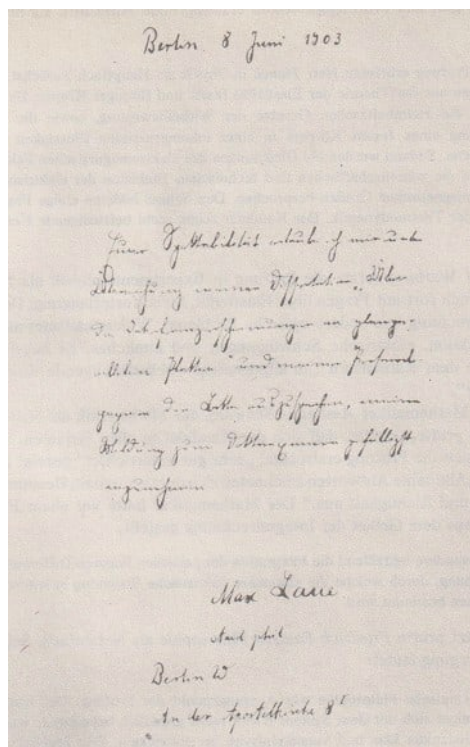 Berlin 8 Juni 1903
Eurer Spektabilität erlaube ich mir unter
Überreichung meiner Dissertation „Über
die Interferenzerscheinungen an planpa-
rallelen Platten“ und meiner Personal-
papiere die Bitte auszusprechen, meine
Meldung zum Doktorexamen gefälligst
anzunehmen
Max Laue
phil
Berlin W
An der Apostelkirche 8 I